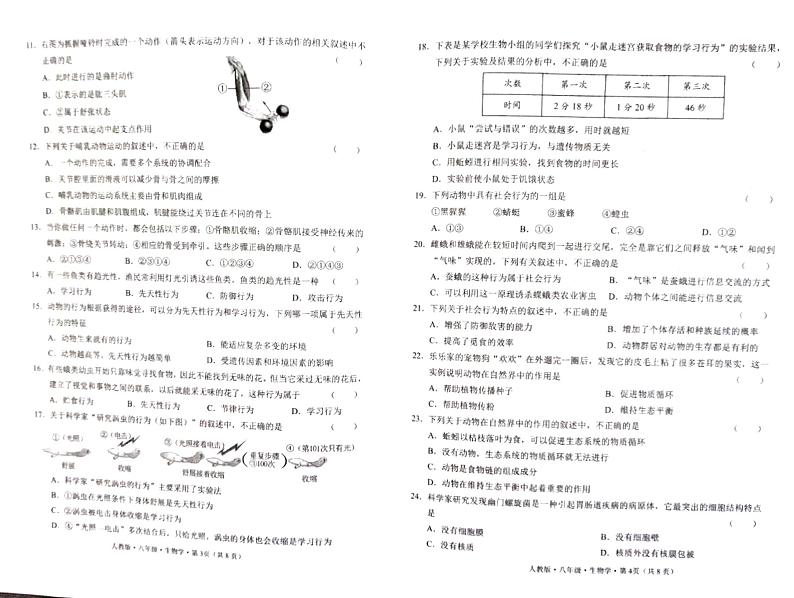 11. 右图为抓握哑铃时完成的一个动作（箭头表示运动方向），对于该动作的相关叙述中不
正确的是 （ ）
A. 此时进行的是曲肘动作
B. ①表示的是肱三头肌
C. ②属于舒张状态
D. 关节在该运动中起支点作用
① ②
12. 下列关于哺乳动物运动的叙述中，不正确的是 （ ）
A. 一个动作的完成，需要多个系统的协调配合
B. 关节腔里面的滑液可以减少骨与骨之间的摩擦
C. 哺乳动物的运动系统主要由骨和肌肉组成
D. 骨骼肌由肌腱和肌腹组成，肌腱能绕过关节连在不同的骨上
13. 当你做任何一个动作时，都会包括以下步骤：①骨骼肌收缩；②骨骼肌接受神经传来的
刺激；③骨绕关节转动；④相应的骨受到牵引。这些步骤正确的顺序是 （ ）
A. ②①③④ B. ②③①④ C. ①②③④ D. ②①④③
14. 有一些鱼类有趋光性，渔民常利用灯光引诱这些鱼类。鱼类的趋光性是一种 （ ）
A. 学习行为 B. 先天性行为 C. 防御行为 D. 攻击行为
15. 动物的行为根据获得的途径，可以分为先天性行为和学习行为，下列哪一项属于先天性
行为的特征 （ ）
A. 动物生来就有的行为 B. 能适应复杂多变的环境
C. 动物越高等，先天性行为越简单 D. 受遗传因素和环境因素的影响
16. 有些蛾类幼虫开始只靠味觉寻找食物，因此不能找到无味的花。但当它采过无味的花后，
建立了视觉和事物之间的联系，以后就能采无味的花了，这种行为属于 （ ）
A. 贮食行为 B. 先天性行为 C. 节律行为 D. 学习行为
17. 关于科学家“研究涡虫的行为（如下图）”的叙述中，不正确的是 （ ）
①（光照） ②（电击） ③（光照接着电击） ④（第101次只有光）
重复步骤
③100次
舒展 收缩 舒展接着收缩 收缩
A. 科学家“研究涡虫的行为”主要采用了实验法
B. ①涡虫在光照条件下身体舒展是先天性行为
C. ②涡虫被电击身体收缩是学习行为
D. ④“光照—电击”多次结合后，只给光照，涡虫的身体也会收缩是学习行为
人教版·八年级·生物学·第3页（共8页）
18. 下表是某学校生物小组的同学们探究“小鼠走迷宫获取食物的学习行为”的实验结果，
下列关于实验及结果的分析中，不正确的是 （ ）
次数 第一次 第二次 第三次
时间 2分18秒 1分20秒 46秒
A. 小鼠“尝试与错误”的次数越多，用时就越短
B. 小鼠走迷宫是学习行为，与遗传物质无关
C. 用蚯蚓进行相同实验，找到食物的时间更长
D. 实验前使小鼠处于饥饿状态
19. 下列动物中具有社会行为的一组是 （ ）
①黑猩猩 ②蜻蜓 ③蜜蜂 ④蝗虫
A. ①③ B. ①④ C. ②④ D. ①②
20. 雌蛾和雄蛾能在较短时间内爬到一起进行交尾，完全是靠它们之间释放“气味”和闻到
“气味”实现的，下列有关叙述中，不正确的是 （ ）
A. 蚕蛾的这种行为属于社会行为 B. “气味”是蚕蛾进行信息交流的方式
C. 可以利用这一原理诱杀蝶蛾类农业害虫 D. 动物个体之间能进行信息交流
21. 下列关于社会行为特点的叙述中，不正确的是 （ ）
A. 增强了防御敌害的能力 B. 增加了个体存活和种族延续的概率
C. 提高了觅食的效率 D. 动物群居对动物的生存都是有利的
22. 乐乐家的宠物狗“欢欢”在外遛完一圈后，发现它的皮毛上粘了很多苍耳的果实，这一
实例说明动物在自然界中的作用是 （ ）
A. 帮助植物传播种子 B. 促进物质循环
C. 帮助植物传粉 D. 维持生态平衡
23. 下列关于动物在自然界中的作用的叙述中，不正确的是 （ ）
A. 蚯蚓以枯枝落叶为食，可以促进生态系统的物质循环
B. 没有动物，生态系统的物质循环就无法进行
C. 动物是食物链的组成成分
D. 动物在维持生态平衡中起着重要的作用
24. 科学家研究发现幽门螺旋菌是一种引起胃肠道疾病的病原体，它最突出的细胞结构特点
是 （ ）
A. 没有细胞膜 B. 没有细胞壁
C. 没有核质 D. 核质外没有核膜包被
人教版·八年级·生物学·第4页（共8页）